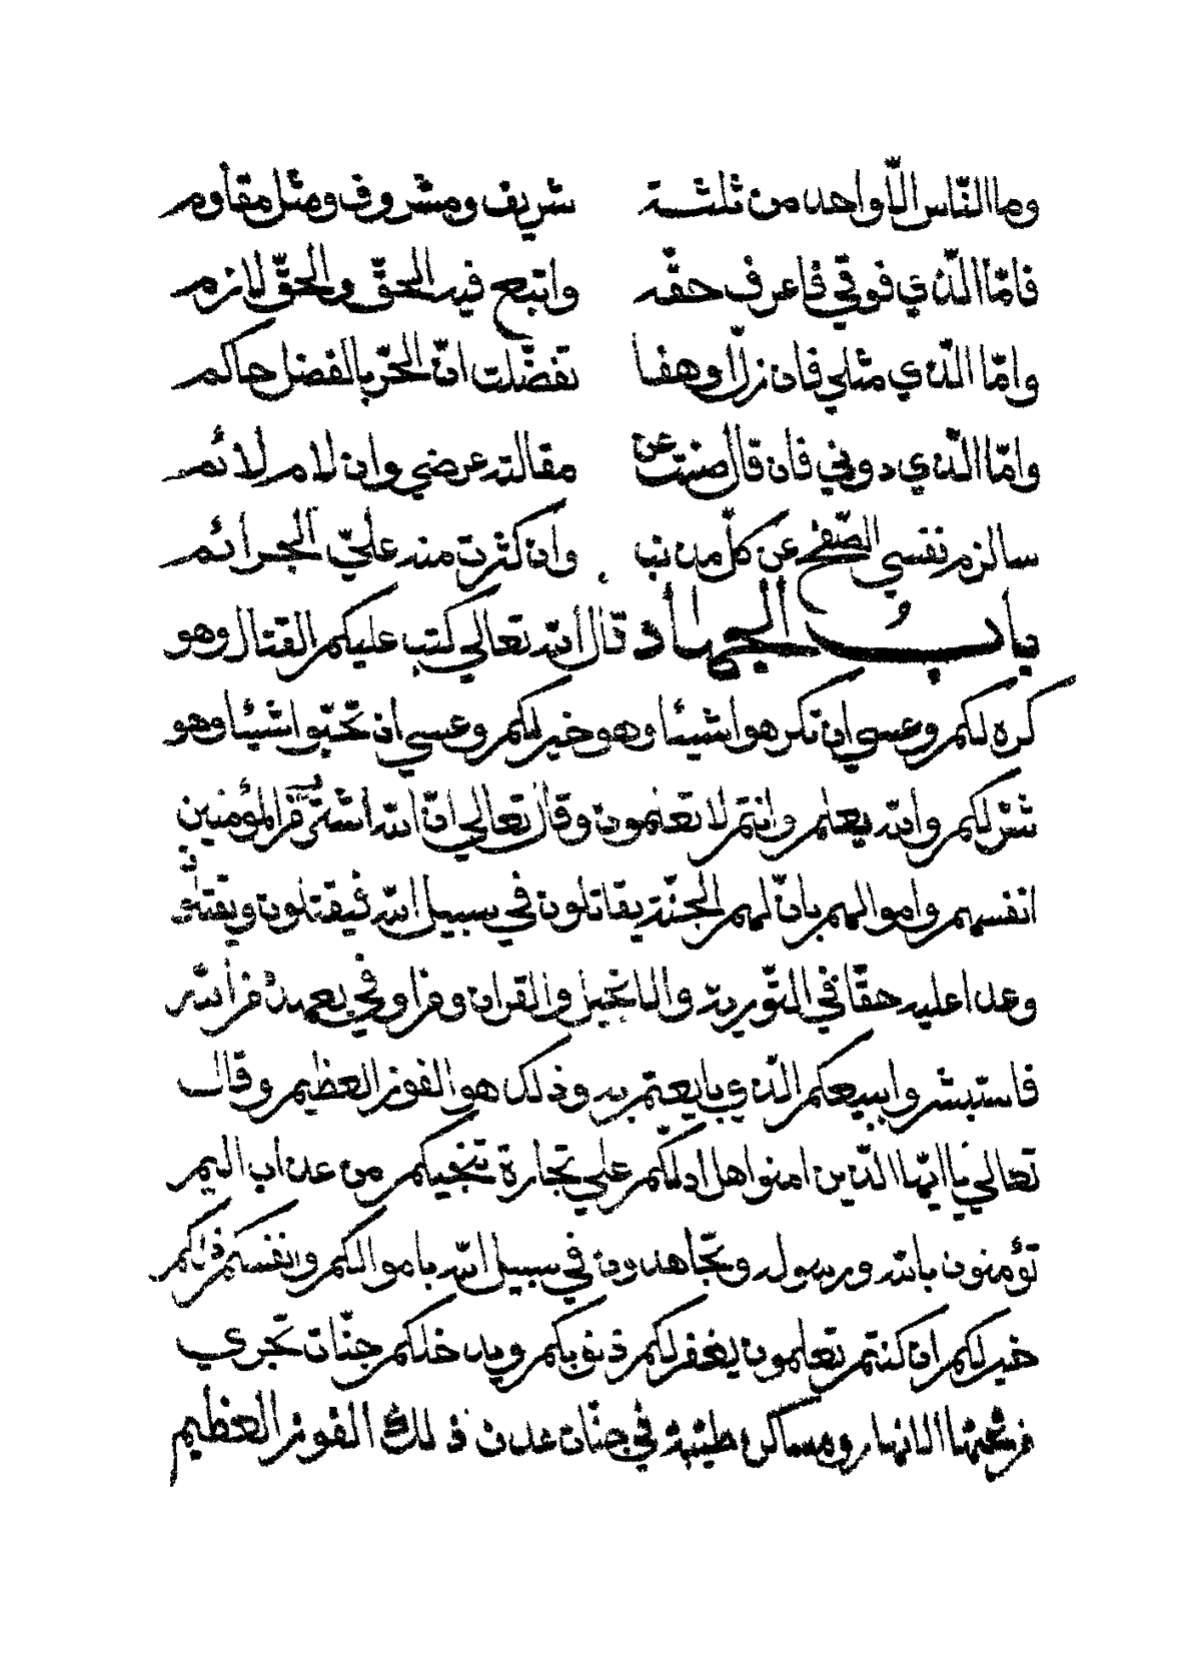 وما النّاس الّا واحد من ثلثة شريف ومشروف ومثل مقاوم
فامّا الّذي فوقي فاعرف حقّه واتبع فيه الحقّ والحقّ لازم
وامّا الّذي مثلي فان زلّ او هفا تفضّلت انّ الحرّ بالفضل حاكم
وامّا الّذي دوني فان قال صنت عن مقالته عرضي وان لام لائم
سالزم نفسي الصّفح عن كلّ مذنب وان كثرت منه عليّ الجرائم
بابُ الجهاد قال الله تعالي كتب عليكم القتال وهو
كره لكم وعسي ان تكرهوا شيئا وهو خير لكم وعسي ان تحبّوا شيئا وهو
شرّ لكم والله يعلم وانتم لا تعلمون وقال تعالي انّ الله اشتري من المؤمنين
انفسهم واموالهم بانّ لهم الجنّة يقاتلون في سبيل الله فيقتلون ويقتلون
وعدا عليه حقّا في التّورية والانجيل والقران ومن اوفي بعهده من الله
فاستبشروا ببيعكم الّذي بايعتم به وذلك هو الفوز العظيم وقال
تعالي يا ايّها الّذين امنوا هل ادلّكم علي تجارة تنجيكم من عذاب اليم
تؤمنون بالله ورسوله وتجاهدون في سبيل الله باموالكم وانفسكم ذلكم
خير لكم ان كنتم تعلمون يغفر لكم ذنوبكم ويدخلكم جنّات تجري
من تحتها الانهار ومساكن طيّبة في جنّات عدن ذلك الفوز العظيم